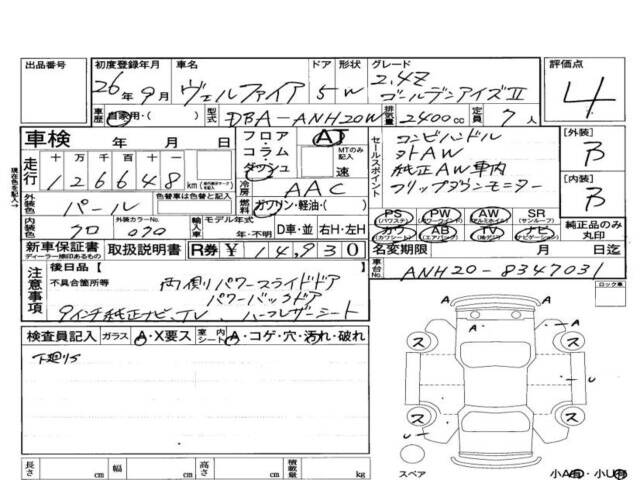 出品番号 初度登録年月 車名 ドア 形状 グレード 評価点
26年9月 ヴェルファイア 5 W 2.4Z ゴールデンアイズⅡ 4
車歴 自家用・( ) 型式 DBA-ANH20W 排気量 2400cc 定員 7人
車検 年 月 日 フロア・コラム・ダッシュ AT MTのみ記入 速
セールスポイント コンビハンドル
社外AW
純正AW車内
フリップダウンモニター
[外装] B
[内装] B
現在色を記入→
走行 十 万 千 百 十 一
126648 km
冷房 AAC
外装色 パール 色替車は色替と記入 燃料 ガソリン・軽油・( )
内装色 クロ 外装カラーNo. 070 輸入車 モデル年式 年・不明 D車・並 右H・左H
PS (パワステ) PW (パワーウインド) AW (アルミホイル) SR (サンルーフ)
カワ (カワシート) AB (エアバック) TV ナビ (ナビゲーション)
純正品のみ丸印
新車保証書 ディーラー捺印あるもの 取扱説明書 R券 ¥14,930
名変期限 月 日迄
車台No. ANH20-8347031
注意事項 後日品 [ ]
不具合箇所等 両側パワースライドドア
パワーバックドア
9インチ純正ナビ、TV、ハーフレザーシート
ロック車
検査員記入 ガラス A・X要ス 室内 A・コゲ・穴・汚れ・破れ
下廻りS
A A
A A
ス ス
U
ス ス
U
スペア 小A有・小U有
長さ cm 幅 cm 高さ cm 積載量 kg